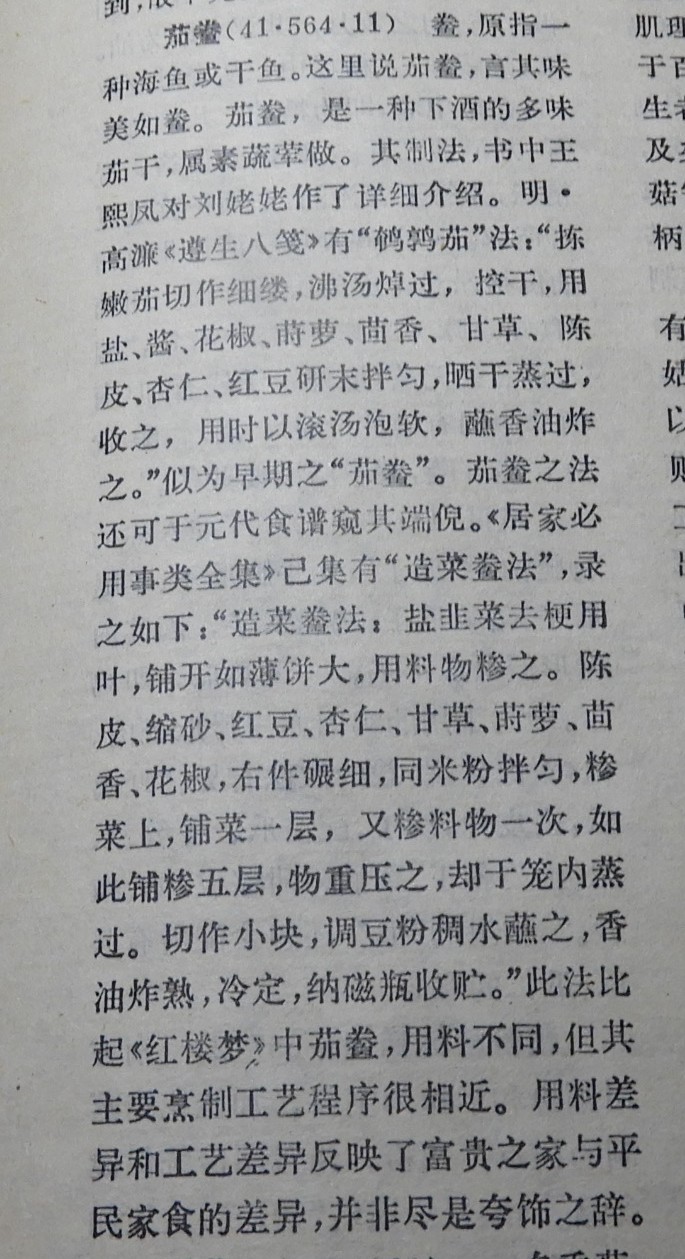 茄鲞(41·564·11)　鲞,原指一
种海鱼或干鱼。这里说茄鲞,言其味
美如鲞。茄鲞，是一种下酒的多味
茄干,属素蔬荤做。其制法,书中王
熙凤对刘姥姥作了详细介绍。明·
高濂《遵生八笺》有“鹌鹑茄”法:“拣
嫩茄切作细缕,沸汤焯过，控干,用
盐、酱、花椒、莳萝、茴香、甘草、陈
皮、杏仁、红豆研末拌匀,晒干蒸过,
收之，用时以滚汤泡软，蘸香油炸
之。”似为早期之“茄鲞”。茄鲞之法
还可于元代食谱窥其端倪。《居家必
用事类全集》己集有“造菜鲞法”,录
之如下:“造菜鲞法：盐韭菜去梗用
叶,铺开如薄饼大,用料物糁之。陈
皮、缩砂、红豆、杏仁、甘草、莳萝、茴
香、花椒,右件碾细,同米粉拌匀,糁
菜上,铺菜一层，又糁料物一次,如
此铺糁五层,物重压之,却于笼内蒸
过。切作小块,调豆粉稠水蘸之,香
油炸熟,冷定,纳磁瓶收贮。”此法比
起《红楼梦》中茄鲞,用料不同,但其
主要烹制工艺程序很相近。用料差
异和工艺差异反映了富贵之家与平
民家食的差异,并非尽是夸饰之辞。
肌理
于百
生
及
菇
柄
有
姑
以